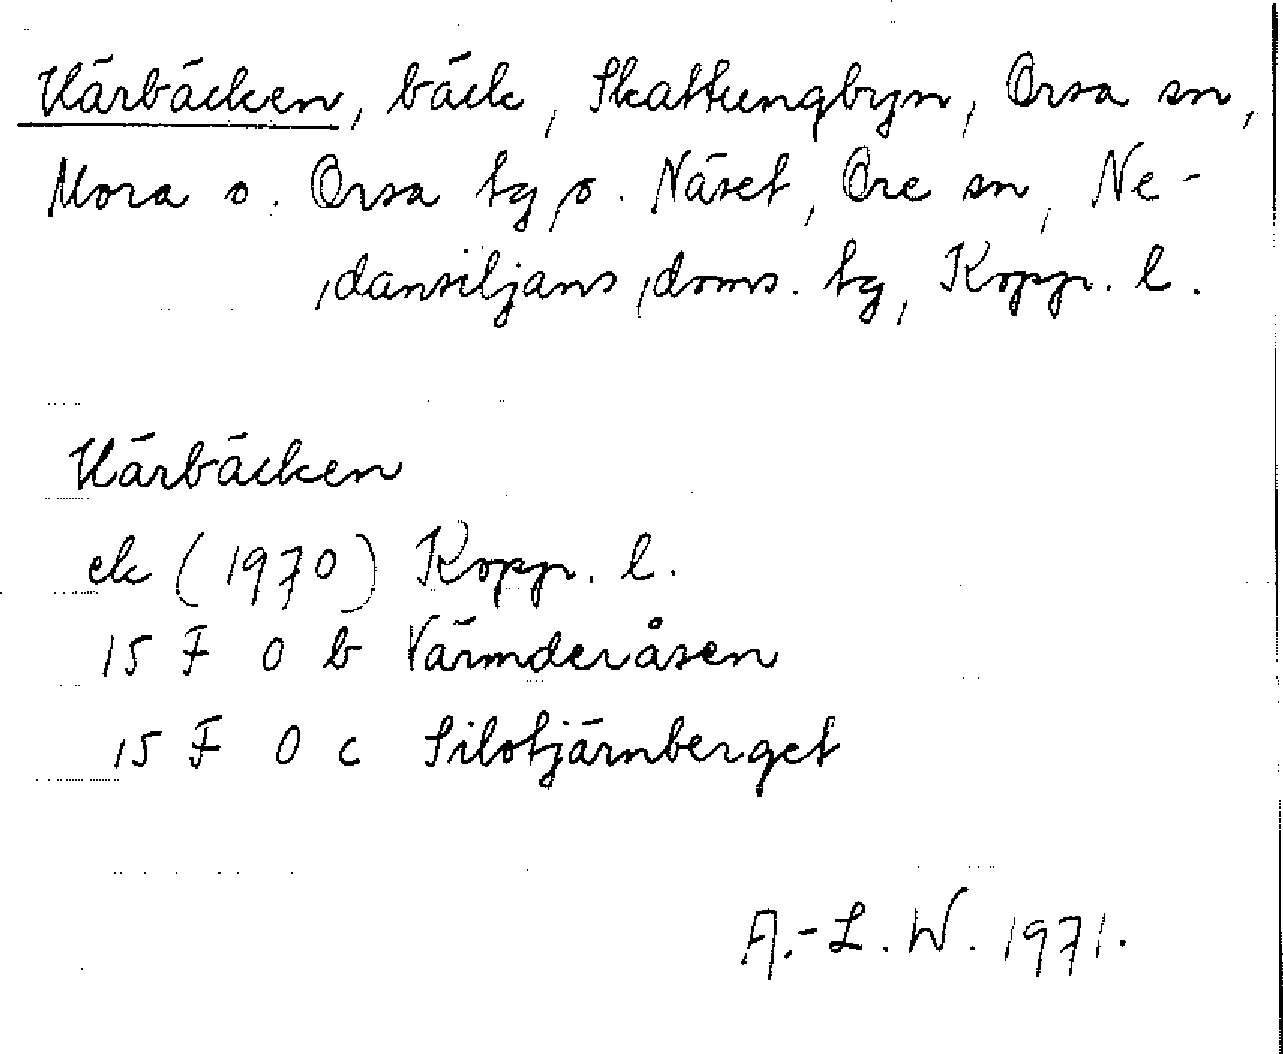 Kärbäcken, bäck, Skattungbyn, Orsa sn,
Mora o. Orsa tg o. Näset, Ore sn, Ne-
dansiljans doms. tg, Kopp. l.
Kärbäcken
ek (1970) Kopp. l.
15 F 0 b Värmderåsen
15 F 0 c Silotjärnberget
A.-L. W. 1971.